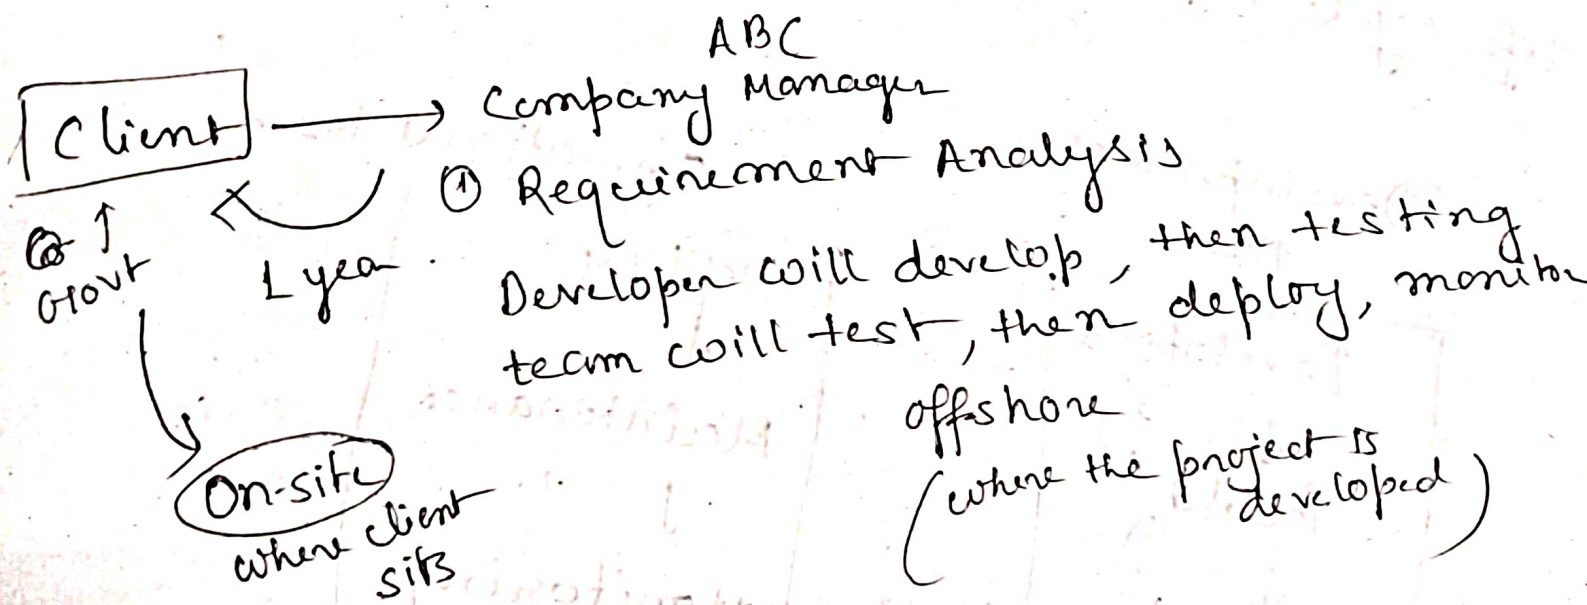 ABC
Client → Company Manager
① Requirement Analysis
↑
Govt
1 year.
Developer will develop, then testing
team will test, then deploy, monitor
offshore
(where the project is
developed)
On-site
where client
sits